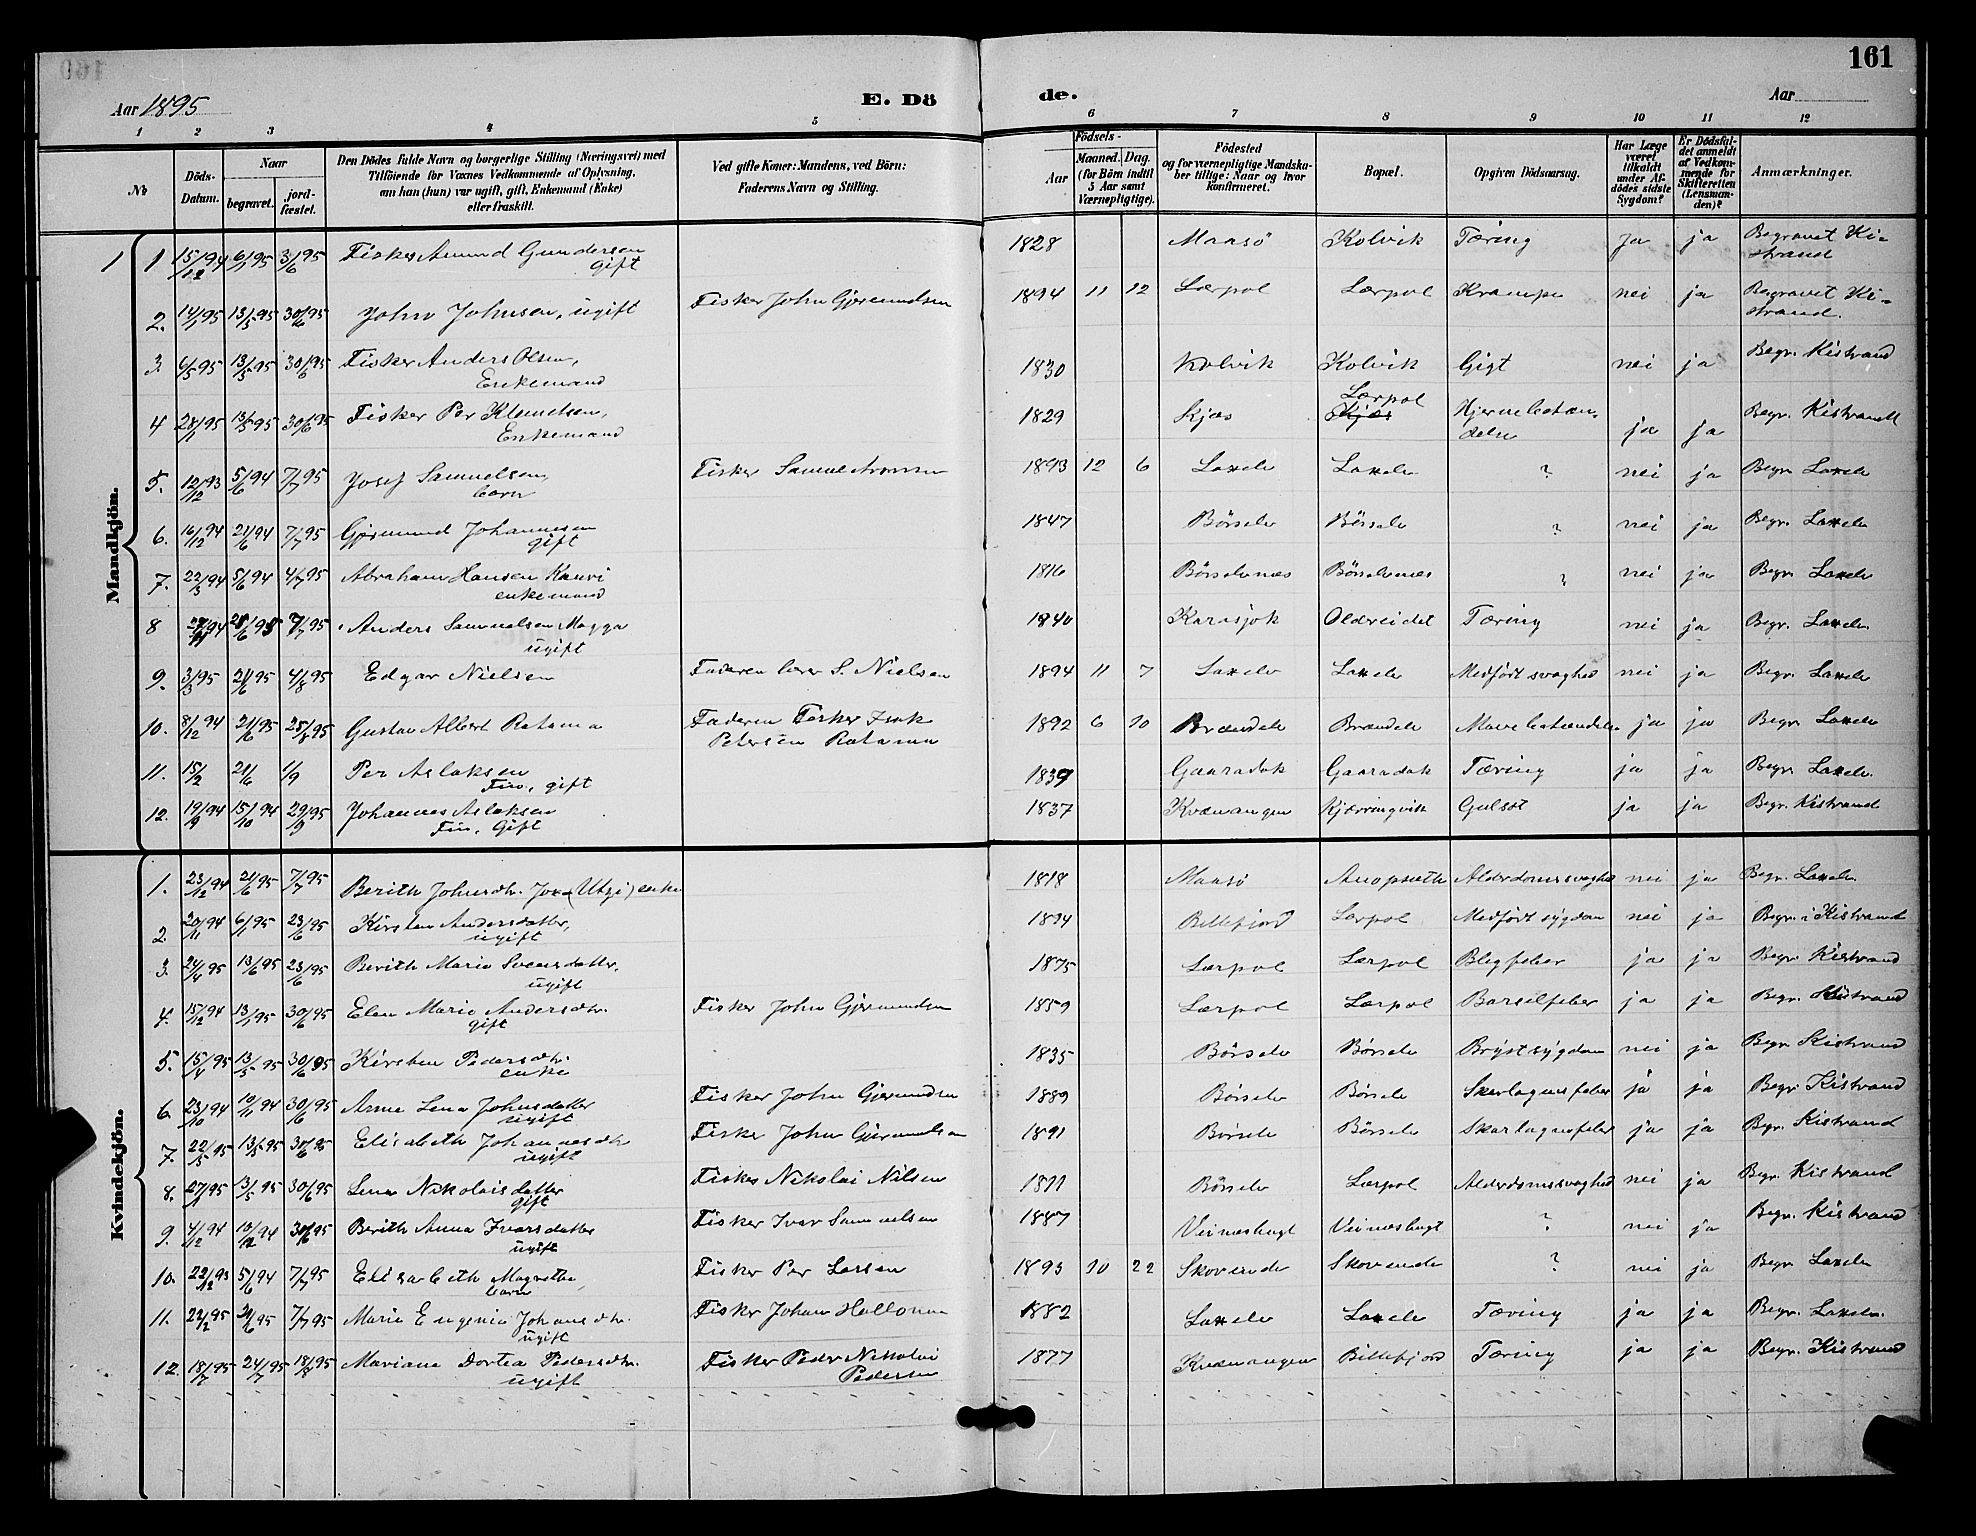 161
Aar 1895
E. Dö de.
Aar
1 2 3 4 5 6 7 8 9 10 11 12
№
Döds-Datum.
Naar begravet. jordfæstet.
Den Dödes fulde Navn og borgerlige Stilling (Næringsvei) med Tilföiende for Voxnes Vedkommende af Oplysning, om han (hun) var ugift, gift, Enkemand (Enke) eller fraskilt.
Ved gifte Koner: Mandens, ved Börn: Faderens Navn og Stilling.
Födsels-
Aar
Maaned. Dag. (for Börn indtil 5 Aar samt Værnepligtige).
Födested og for værnepligtige Mandskaber tillige: Naar og hvor konfirmeret.
Bopæl.
Opgiven Dödsaarsag.
Har Læge været tilkaldt under Afdödes sidste Sygdom?
Er Dödsfaldet anmeldt af Vedkommende for Skifteretten (Lensmanden)?
Anmærkninger.
Mandkjön.
1 1 15/12 94 6/1 95 3/6 95 Fisker Amund Gundersen gift 1828 Maasö Kolvik Tæring Ja ja Begravet Kistrand
2. 14/1 95 13/5 95 30/6 95 John Johnsen, ugift Fisker John Gjermundsen 1894 11 12 Lærpol Lærpol Krampe nei ja Begravet Kistrand.
3. 6/5 95 13/5 95 30/6 95 Fisker Anders Olsen, Enkemand 1830 Kolvik Kolvik Gigt nei ja Begr. Kistrand
4 28/1 95 13/5 95 30/6 95 Fisker Per Klemetsen, Enkemand 1829 Kjæs Lærpol Hjernebetændelse ja ja Begr. Kistrand
5. 12/12 93 5/6 94 7/7 95 Josef Samuelsen, barn Fisker Samuel Aronsen 1893 12 6 Laxelv Laxelv ? nei ja Begr. Laxelv
6. 16/12 94 21/6 94 7/7 95 Gjermund Johannesen gift 1847 Börselv Börselv ? nei ja Begr. Laxelv
7. 22/3 94 5/6 94 4/7 95 Abraham Hansen Kauri enkemand 1816 Börselvnæs Börselvnæs ? nei ja Begr. Laxelv
8 94 7/7 95 Anders Samuelsen Magga ugift 1840 Karasjok Oldereidet Tæring nei ja Begr. Laxelv
9. 3/3 95 21/6 95 4/8 95 Edgar Nielsen Faderen lærer S. Nielsen 1894 11 7 Laxelv Laxelv Medfört svaghed nei ja Begr. Laxelv
10. 8/12 94 21/6 95 25/8 95 Gustav Albert Ratama Faderen Fisker Isak Petersen Ratama 1892 6 10 Brændelv Brændelv Mavebetændelse ja ja Begr. Laxelv
11. 15/2 21/6 1/9 Per Aslaksen Fin, gift 1839 Gaaradak Gaaradak Tæring ja ja Begr. Laxelv.
12. 19/9 94 15/10 94 29/9 95 Johannes Aslaksen Fin, Gift 1837 Kvænangen Kjærringvik Gulsot ja ja Begr. Kistrand
Kvindekjön.
1. 23/12 94 21/6 95 7/7 95 Berith Johnsdtr. Jovn (Utsi) enke 1818 Maasö Alderdomssvaghed nei ja Begr. Laxelv.
2. 20/11 94 6/1 95 23/6 95 Kirsten Andersdatter, ugift 1894 Billefjord Lærpol Medfört sygdom nei ja Begr. i Kistrand
3. 24/4 95 13/6 95 23/6 95 Berith Marie Svensdatter. ugift 1875 Lærpol Lærpol Blegfeber ja ja Begr. Kistrand
4. 15/12 94 13/1 95 30/6 95 Elen Marie Andersdtr. gift Fisker John Gjermundsen 1859 Lærpol Lærpol Barselfeber ja ja Begr. Kistrand
5. 15/4 95 13/5 95 30/6 95 Kirsten Pedersdtr. enke 1835 Börselv Börselv Brystsygdom nei ja Begr. Kistrand
6. 23/10 94 10/11 94 30/6 95 Anne Lena Johnsdatter ugift Fisker John Gjermundsen 1889 Börselv Börselv Skarlagensfeber ja ja Begr. Kistrand
7. 22/5 95 13/5 95 30/6 95 Elisabeth Johannesdtr ugift Fisker John Gjermundsen 1891 Börselv Börselv Skarlagensfeber ja ja Begr. Kistrand
8. 27/1 95 13/5 95 30/6 95 Lena Nikolaisdatter gift Fisker Nikolai Nilsen 1811 Börselv Lærpol Alderdomssvaghed nei ja Begr. Kistrand
9. 4/12 94 10/12 94 30/6 95 Berith Anna Ivarsdatter ugift Fisker Ivar Samuelsen 1887 Veinæsbugt Veinæsbugt ? nei ja Begr. Kistrand
10. 22/12 93 5/6 94 7/7 95 Elisabeth Magrethe, barn Fisker Per Larsen 1893 10 22 Skovende Skovende ? nei ja Begr. Laxelv
11. 22/2 95 21/6 95 7/7 95 Marie Eugenie Johansdtr. ugift Fisker Johan Hallonen 1882 Laxelv Laxelv Tæring ja ja Begr. Laxelv.
12. 18/7 95 24/7 95 18/8 95 Mariane Dortea Pedersdtr. ugift Fisker Peder Nikolai Pedersen 1877 Kvænangen Billefjord Tæring ja ja Begr. Kistrand